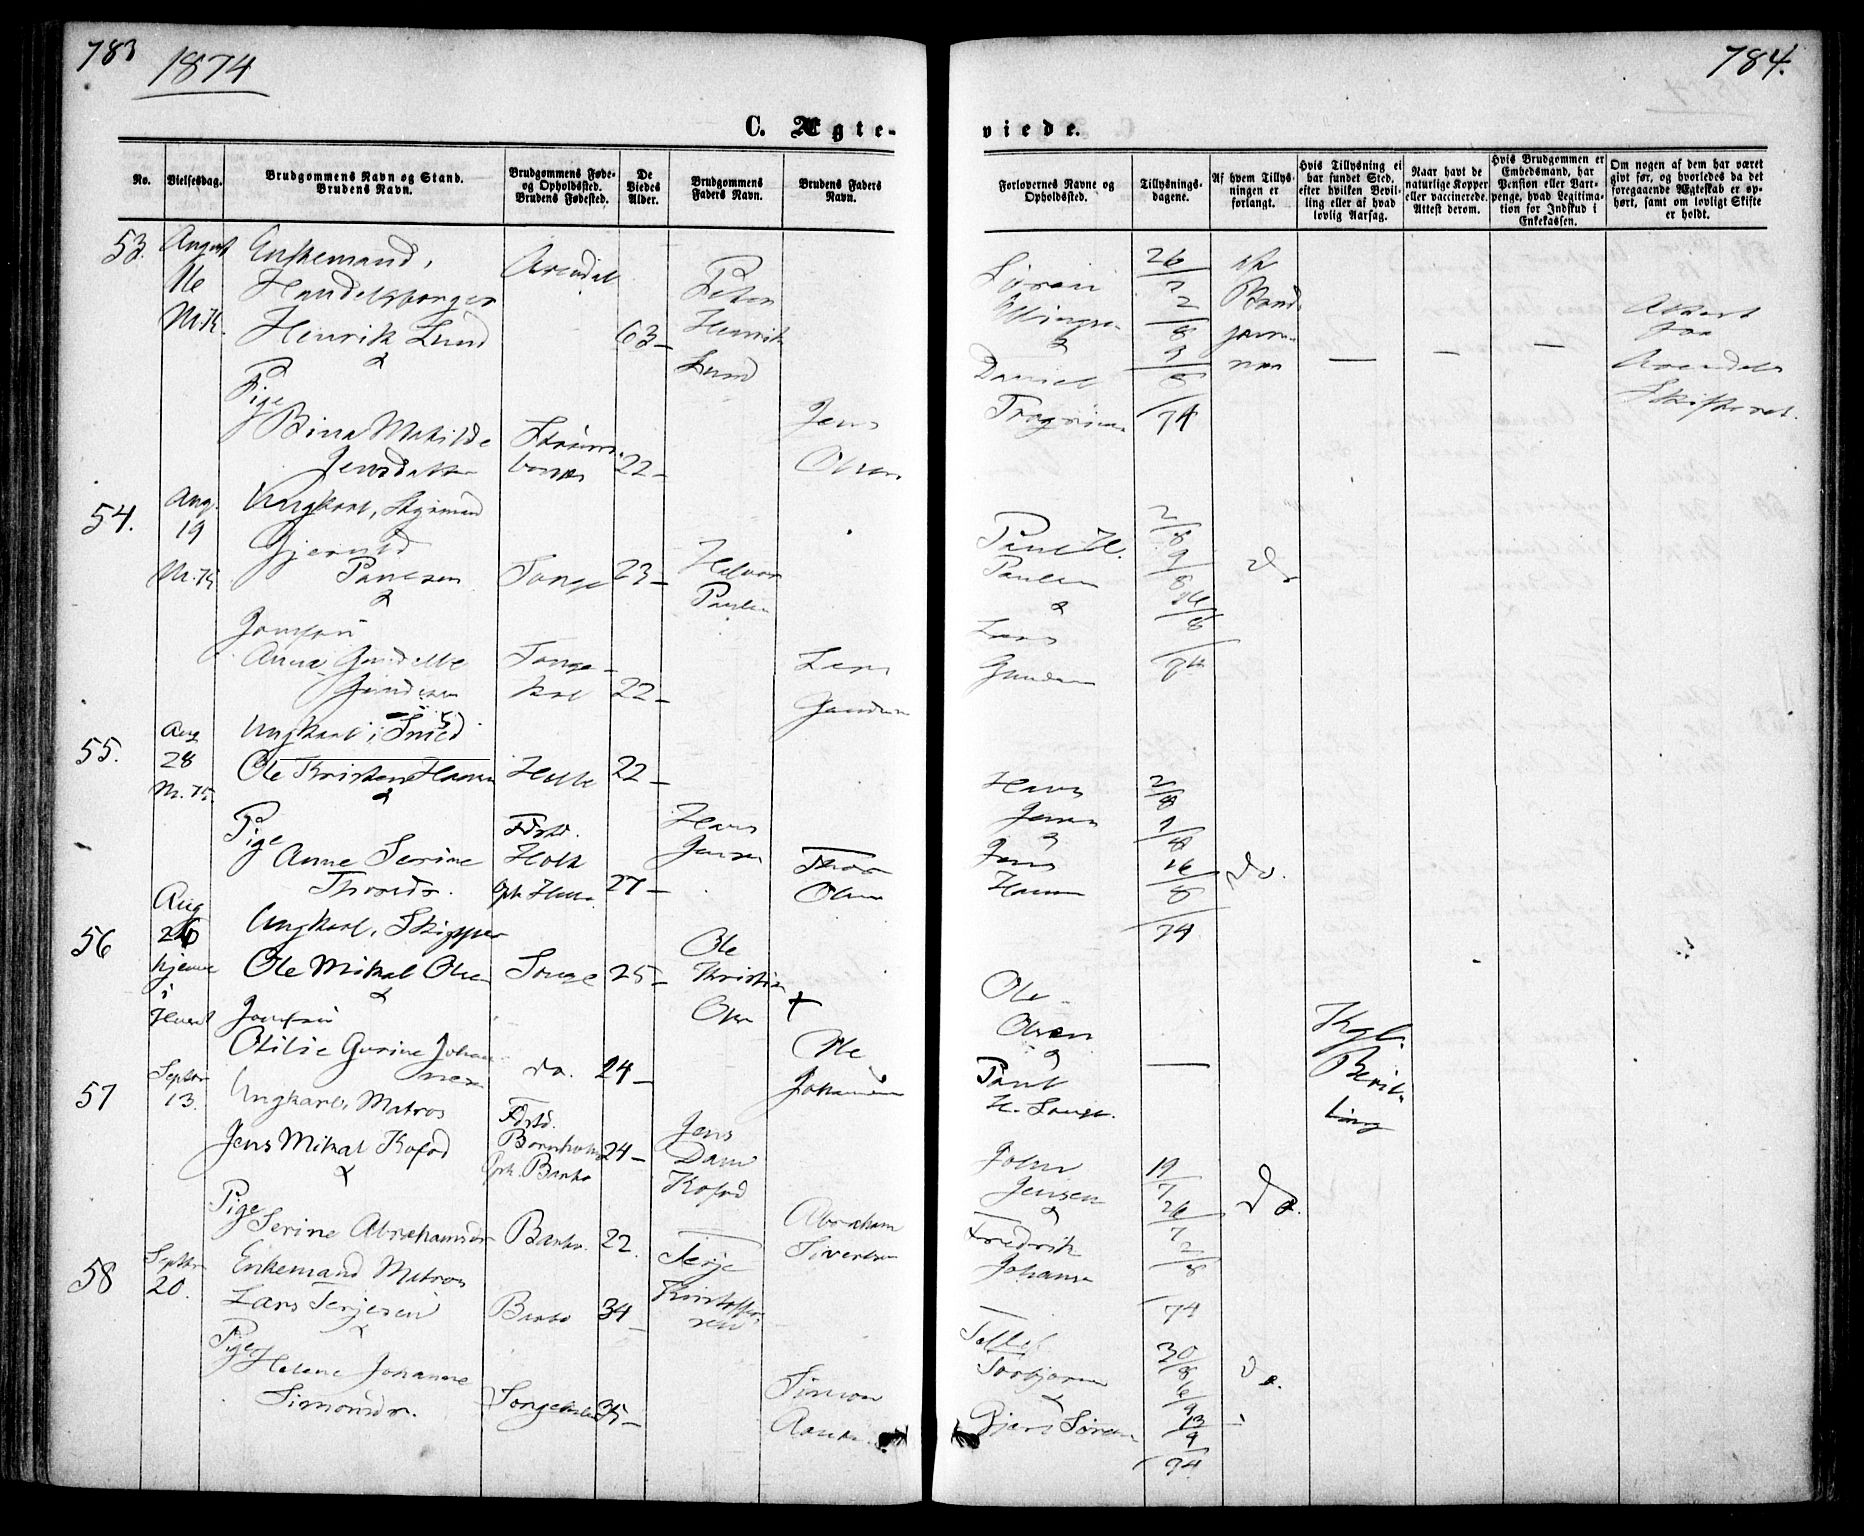 783
1874
C. Ægte-
No.
Vielsesdag.
Brudgommens Navn og Stand.
Brudens Navn.
Brudgommens Føde-
og Opholdssted.
Brudens Fødested.
De
Viedes
Alder.
Brudgommens
Faders Navn.
Brudens Faders
Navn.
53.
August
16
M.K.
Enkemand,
Handelsborger
Henrik Lund
&
Arendal
63-
Peter
Henrik
Lund
Pige
Bina Matilde
Jensdatter
22-
Jens
Olsen
54.
Aug.
19
M.K.
Ungkarl, Styrmand
Paulsen
&
23-
Halvor
Paulsen
Jomfru
Anna
Gundersen
22-
Lars
Gundersen
55.
Aug
28
M.K.
Ungkarl, Smed
Ole Kristian Hansen
&
Holte
22-
Hans
Jensen
Pige
Anne Serine
Thorsdr.
Fdstd.
Holt
27-
Thor
Olsen
56
Aug
26
hjemme
i
Ungkarl, Skipper
Ole Mikal Olsen
&
Songe
25-
Ole
Kristian
Olsen
+
Jomfru
Otilie Gurine Johan-
nesen
do.
24-
Ole
Johannesen
57
Septbr
13.
Ungkarl, Matros
Jens Mikal Kofod
&
Fdstd.
Bornholm
Oph. Barbo
24-
Jens
Dam
Kofod
Pige
Serine Abrahamsdr
Barbo.
22.
Abraham
Sivertsen
58
Septbr
20.
Enkemand Matros
Lars Terjesen
&
Barbo
34-
Terje
Kristoffer-
sen
Pige
Helene Johanne
Simonsdr.
35-
Simon
784.
viede.
Forlovernes Navne og
Opholdssted.
Tillysnings-
dagene.
Af hvem Tillys-
ningen er
forlangt.
Hvis Tillysning ei
har fundet Sted,
efter hvilken Bevil-
ling eller af hvad
lovlig Aarsag.
Naar havt de
naturlige Kopper
eller vaccinerede.
Attest derom.
Hvis Brudgommen er
Embedsmand, har
Pension eller Vart-
penge, hvad Legitima-
tion for Indskud i
Enkekassen.
Om nogen af dem har været
givt før, og hvorledes da det
foregaaende Ægteskab er op-
hørt, samt om lovligt Skifte
er holdt.
Søren
Ellingsen
&
Daniel
26/7
2/8
9/8
74
af
Brud-
gom-
men
—
—
—
Attest
fra
Arendals
Skifteret.
Paul H.
Paulsen
&
Lars
Gundersen
2/8
9/8
16/8
74
do
Hans
Jensen
&
Jens
Hansen
2/8
9/8
16/8
74
do.
Ole
Olsen
&
Paul
H. Songe.
—
Kgl.
Bevil-
ling
John
Jensen
&
Fredrik
Johansen
19/7
26/7
2/8
74
do.
Torbjørn
&
Bjørn Sørensen
30/8
6/9
13/9
74
do.